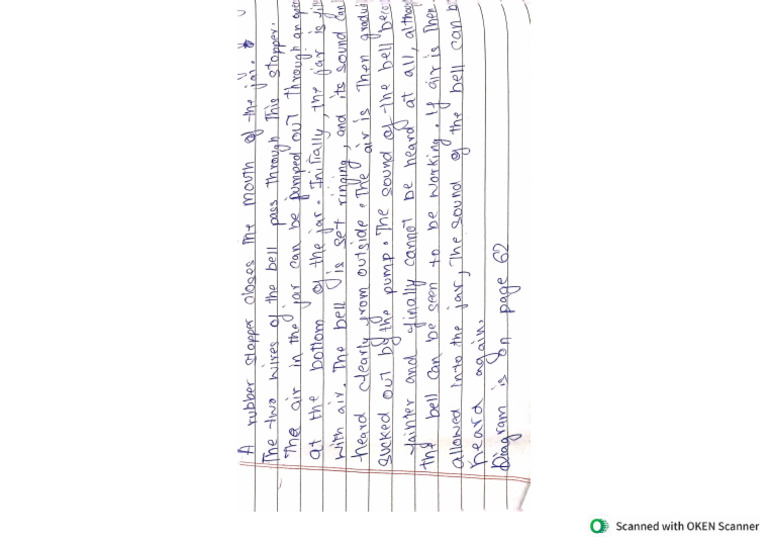 A rubber stopper closes the mouth of the jar.
The two wires of the bell pass through this stopper.
The air in the jar can be pumped out through an
at the bottom of the jar. Initially, the jar is
with air. The bell is set ringing, and its sound can
heard clearly from outside. The air is then
sucked out by the pump. The sound of the bell
fainter and finally cannot be heard at all,
the bell can be seen to be working. If air is then
allowed into the jar, the sound of the bell can
heard again.
Diagram is on page 62
Scanned with OKEN Scanner